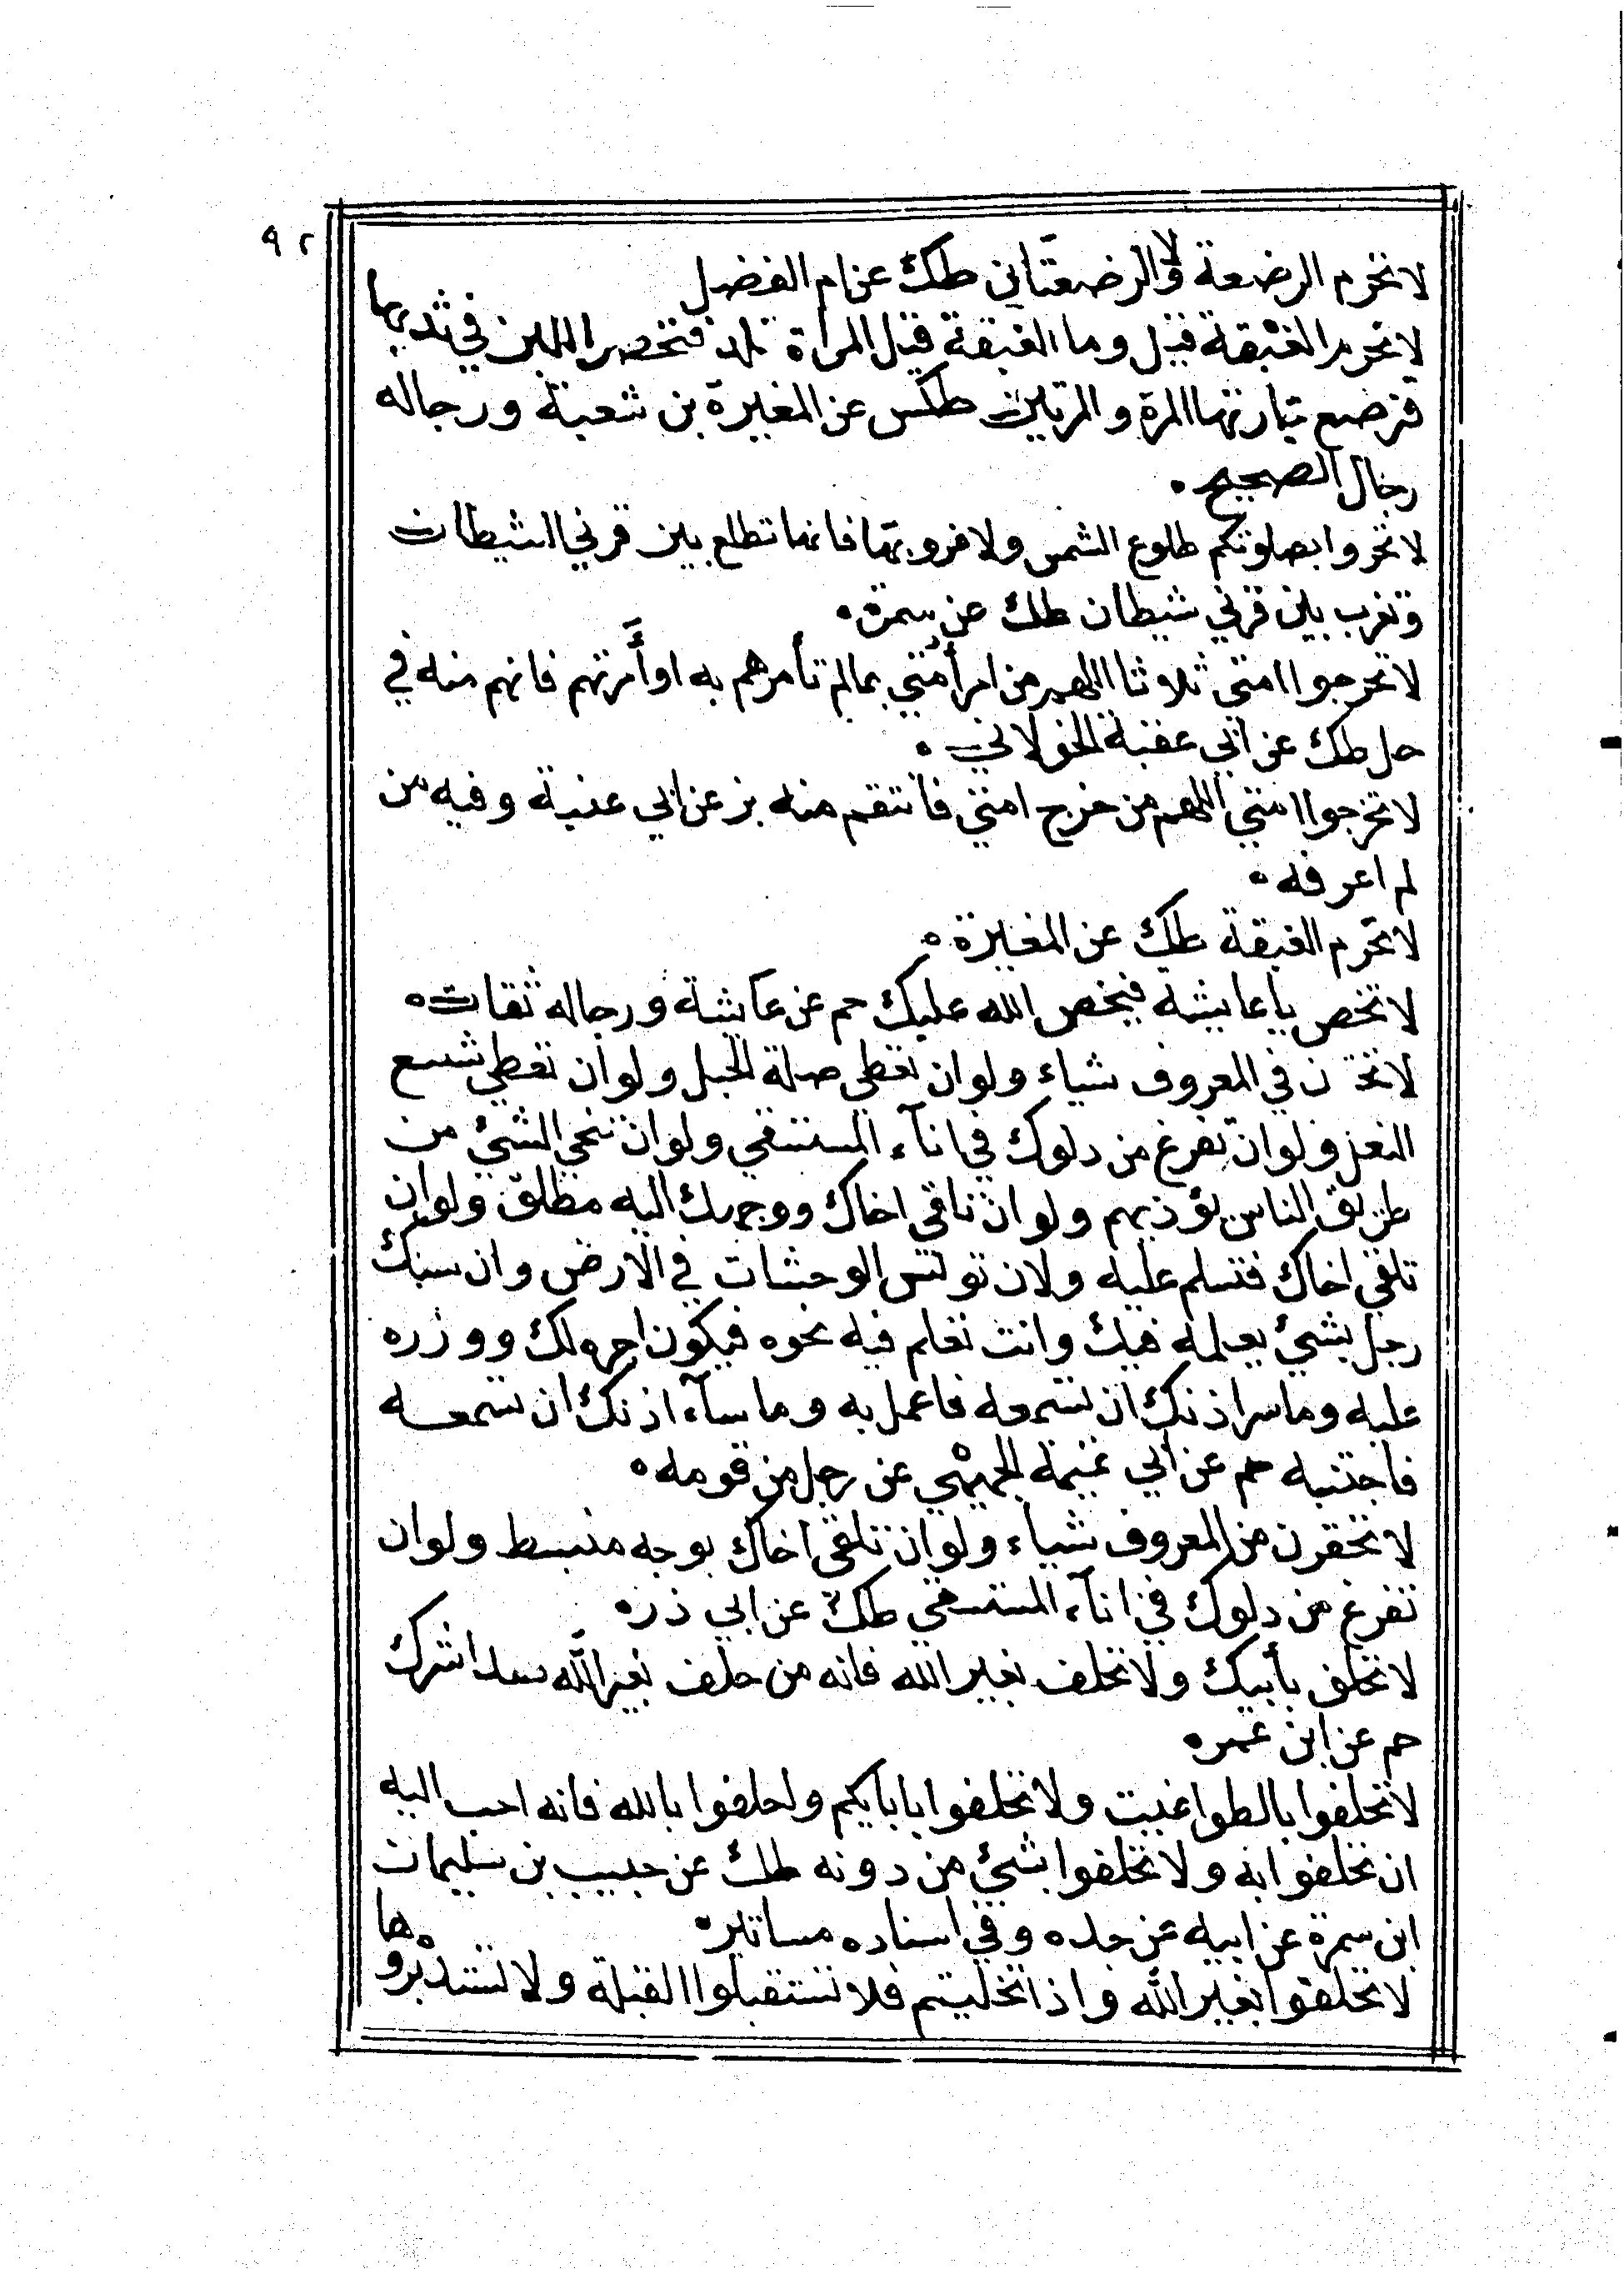 ٩٢
لا تحرم الرضعة ولا الرضعتان طك عن ام الفضل
لا تحرم الغبقة قيل وما الغبقة قيل المرأة تلد فتحصر اللبن في ثديها
فترضع جارتها المرة والمرتين طكس عن المغيرة بن شعبة ورجاله
رجال الصحيح ه
لا تحروا بصلوتكم طلوع الشمس ولا غروبها فانها تطلع بين قرني الشيطان
وتغرب بين قرني شيطان طك عن سمرة ه
لا تحرجوا امتي ثلاثا اللهم من امر امتي بما لم تأمرهم به او أمرتهم فانهم منه في
حل طك عن ابي عقبة الخولاني ه
لا تحرجوا امتي اللهم من حرج امتي فانتقم منه بز عن ابي عنبة وفيه من
لم اعرفه ه
لا تحرم الغبقة طك عن المغيرة ه
لا تحص يا عايشة فيحص الله عليك حم عن عآيشة ورجاله ثقات ه
في المعروف شياء ولو ان تعطي صلة الحبل ولو ان تعطي شسع
النعل ولو ان تفرغ من دلوك في انآء المستسقي ولو ان تنحي الشيئ من
طريق الناس يؤذيهم ولو ان تلقى اخاك ووجهك اليه مطلق ولو ان
تلقي اخاك فتسلم عليه ولان تونس الوحشات في الارض وان سبك
رجل بشيئ يعلمه فيك وانت تعلم فيه نحوه فيكون اجره لك ووزره
عليه وما سر اذنك ان تسمعه فاعمل به وما سآء اذنك ان تسمعه
فاجتنبه حم عن ابي تميمة الجهيمي عن رجل من قومه ه
لا تحقرن من المعروف شياء ولو ان تلقى اخاك بوجه منبسط ولو ان
تفرغ من دلوك في انآء المستسقي طك عن ابي ذر ه
لا تحلف بأبيك ولا تحلف بغير الله فانه من حلف بغير الله اشرك
حم عن ابن عمر ه
لا تحلفوا بالطواغيت ولا تحلفوا بابآيكم واحلفوا بالله فانه احب اليه
ان تحلفوا به ولا تحلفوا بشيئ من دونه طك عن حبيب بن سليمان
ابن سمرة عن ابيه عن جده وفي اسناده مساتير ه
لا تحلفوا بغير الله واذا تخليتم فلا تستقبلوا القبلة ولا تستدبروها